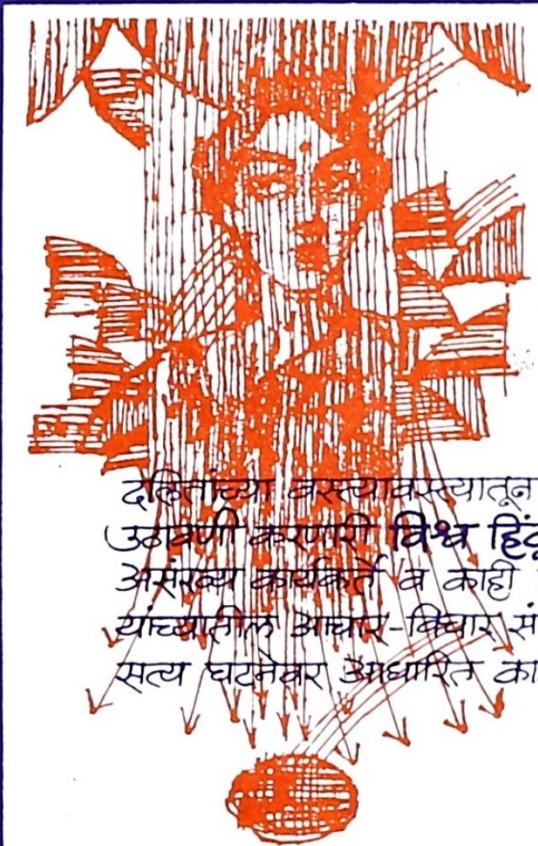 दलितांच्या वस्त्यावस्त्यातून
उठावणी करणारी विश्व हिंदू
असंख्य कार्यकर्ते व काही
यांच्यातील आचार-विचार सं
सत्य घटनेवर आधारित का